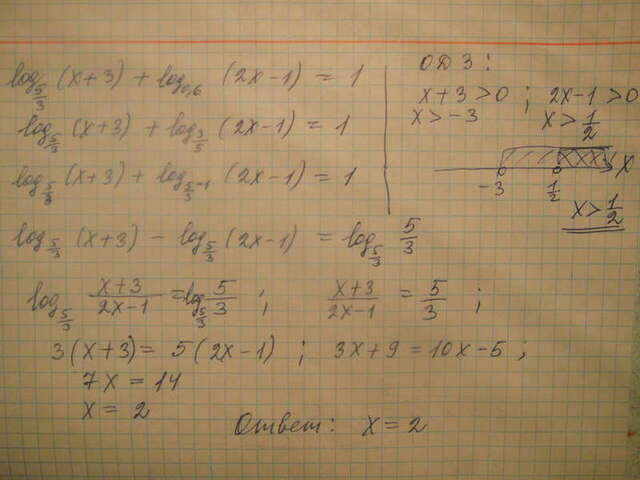 log_{5/3} (x+3) + log_{0,6} (2x-1) = 1
log_{5/3} (x+3) + log_{3/5} (2x-1) = 1
log_{5/3} (x+3) + log_{5/3^{-1}} (2x-1) = 1
log_{5/3} (x+3) - log_{5/3} (2x-1) = log_{5/3} 5/3
log_{5/3} (x+3)/(2x-1) = log_{5/3} 5/3 ; (x+3)/(2x-1) = 5/3 ;
3(x+3) = 5(2x-1) ; 3x+9 = 10x-5 ;
7x = 14
x = 2
Ответ: x = 2
ОДЗ:
x+3 >0 ; 2x-1 >0
x > -3 x > 1/2
x
-3 1/2
x > 1/2